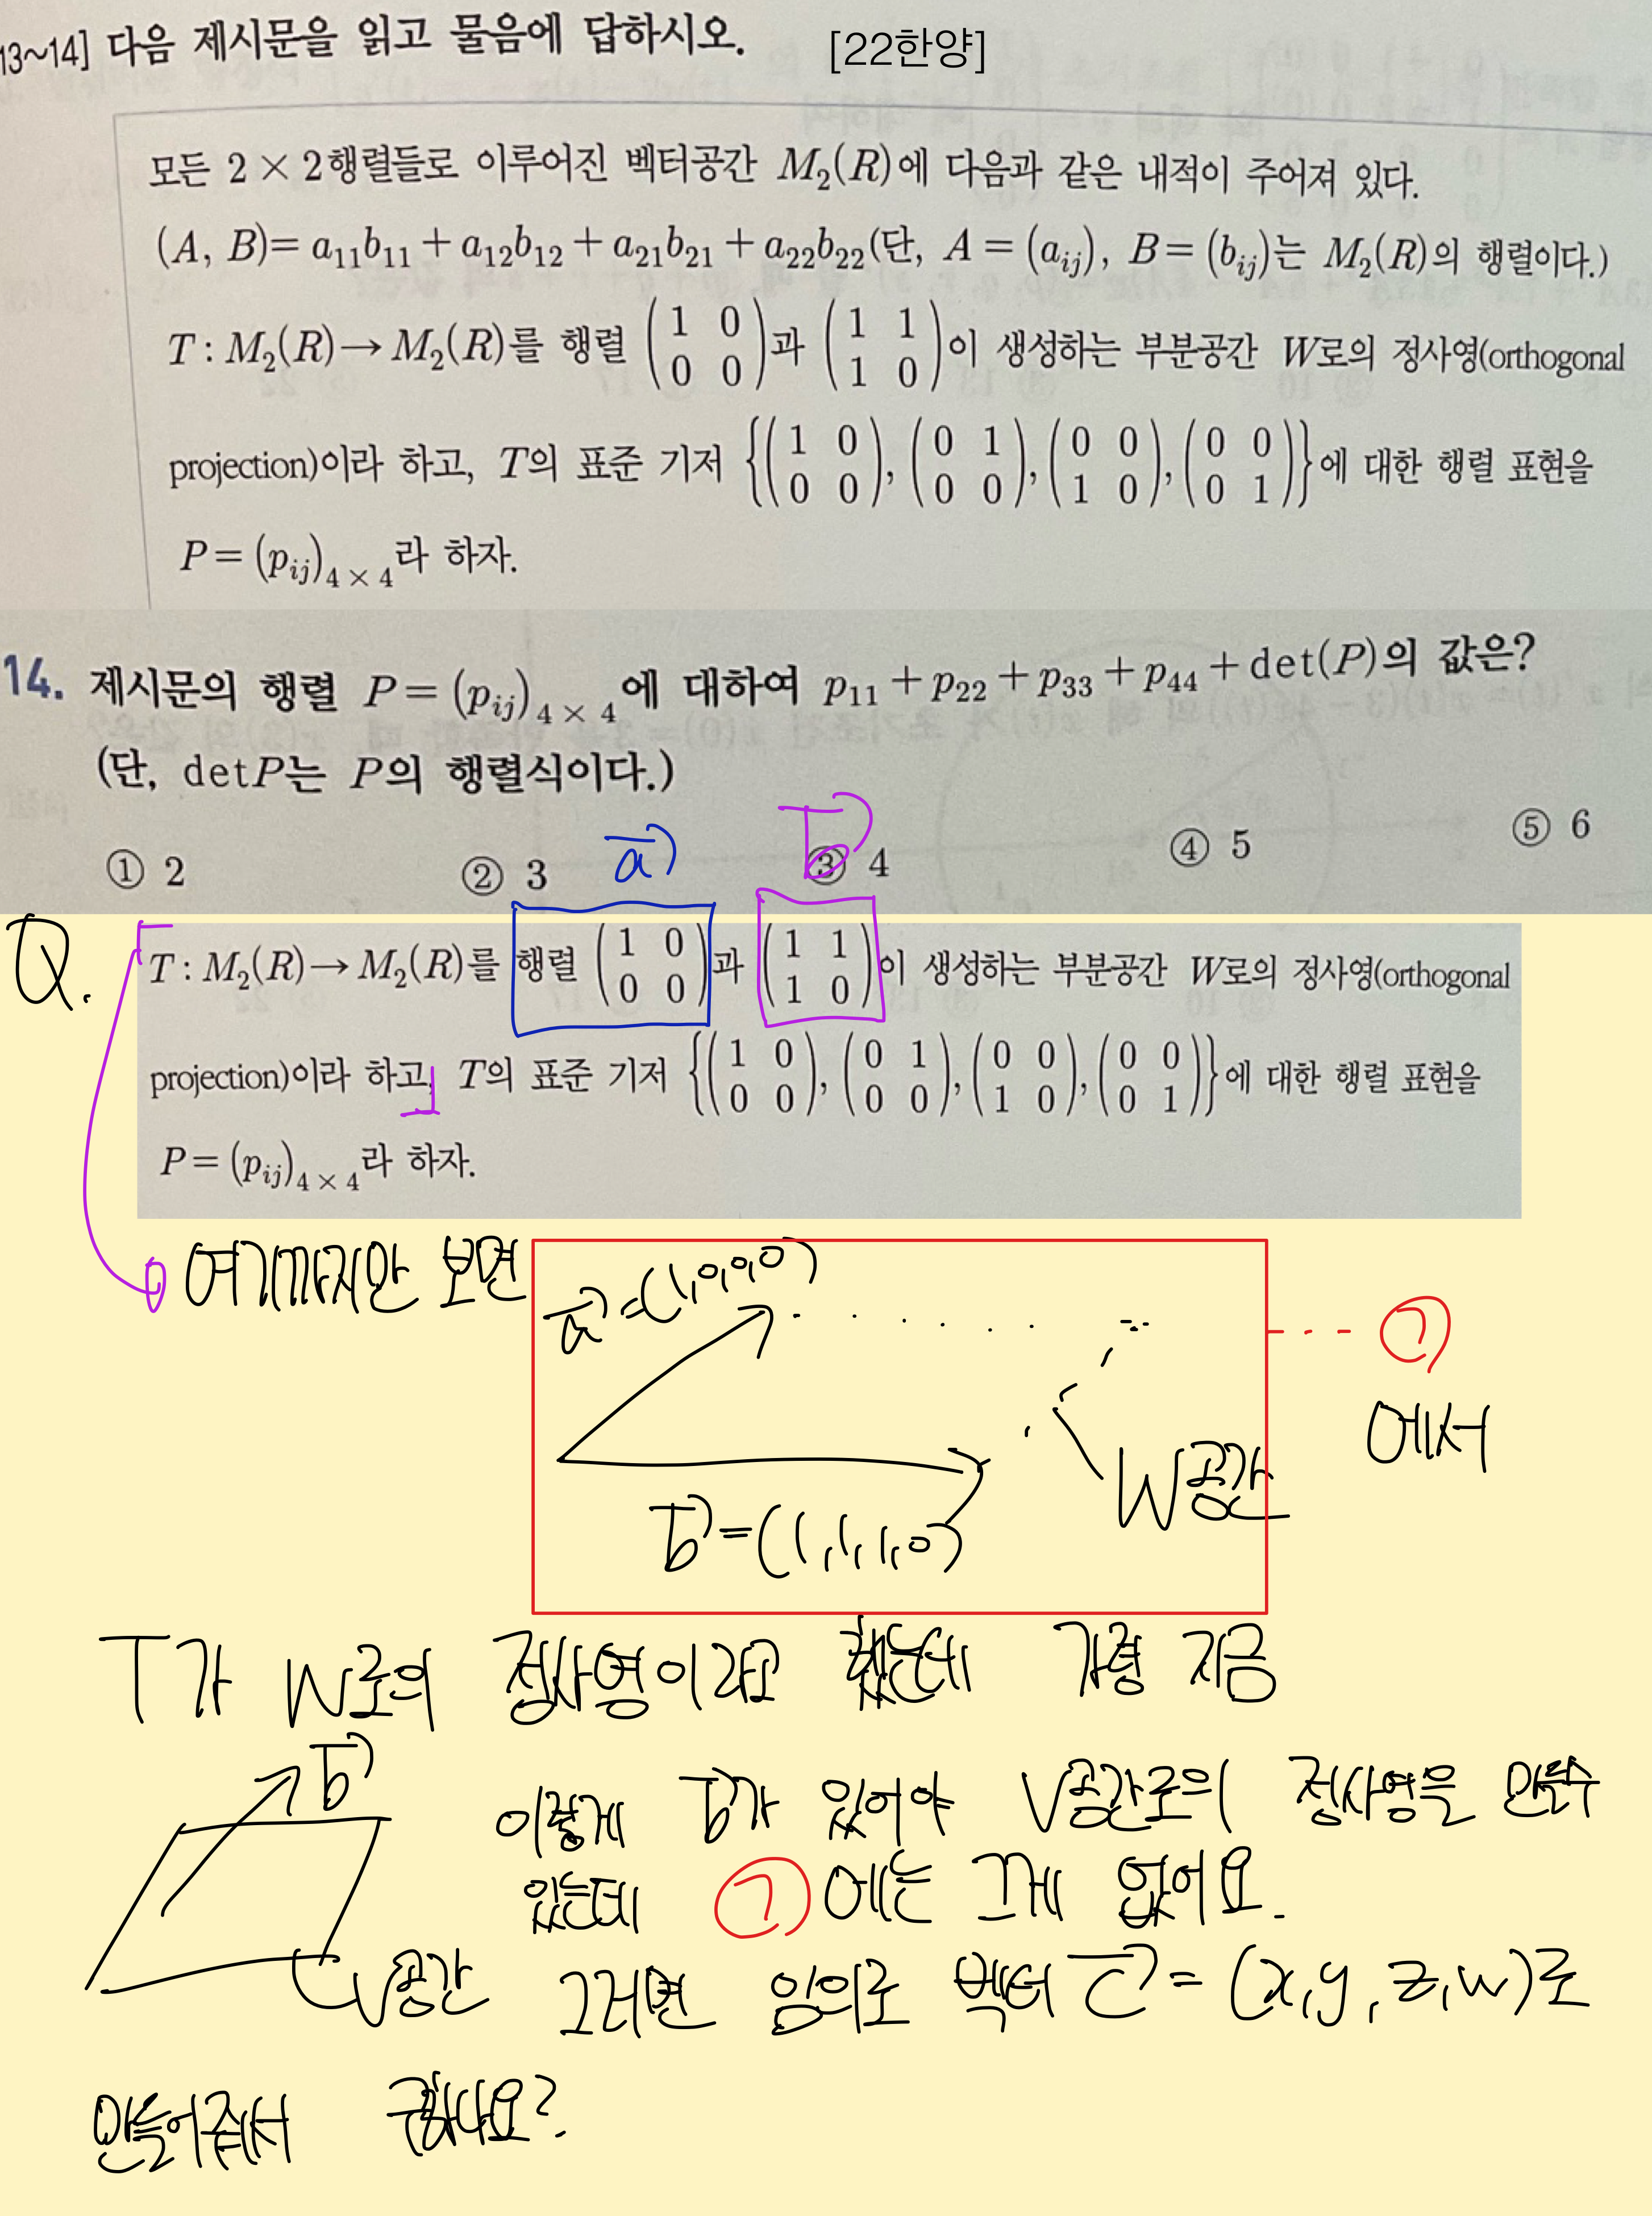 13~14] 다음 제시문을 읽고 물음에 답하시오. [22한양]
모든 2 × 2행렬들로 이루어진 벡터공간 M₂(R)에 다음과 같은 내적이 주어져 있다.
(A, B)= a₁₁b₁₁ + a₁₂b₁₂ + a₂₁b₂₁ + a₂₂b₂₂(단, A = (aᵢⱼ), B = (bᵢⱼ)는 M₂(R)의 행렬이다.)
T : M₂(R) → M₂(R)를 행렬 (1 0 / 0 0)과 (1 1 / 1 0)이 생성하는 부분공간 W로의 정사영(orthogonal
projection)이라 하고, T의 표준 기저 {(1 0 / 0 0), (0 1 / 0 0), (0 0 / 1 0), (0 0 / 0 1)}에 대한 행렬 표현을
P = (pᵢⱼ)₄ × ₄라 하자.
14. 제시문의 행렬 P = (pᵢⱼ)₄ × ₄에 대하여 p₁₁ + p₂₂ + p₃₃ + p₄₄ + det(P)의 값은?
(단, detP는 P의 행렬식이다.)
① 2 ② 3 ③ 4 ④ 5 ⑤ 6
a⃗ b⃗
Q. T : M₂(R) → M₂(R)를 행렬 (1 0 / 0 0)과 (1 1 / 1 0)이 생성하는 부분공간 W로의 정사영(orthogonal
projection)이라 하고, T의 표준 기저 {(1 0 / 0 0), (0 1 / 0 0), (0 0 / 1 0), (0 0 / 0 1)}에 대한 행렬 표현을
P = (pᵢⱼ)₄ × ₄라 하자.
여기까지만 보면 a⃗ = (1,0,0,0)
㉠
에서
W공간
b⃗ = (1,1,1,0)
T가 W로의 정사영이라고 했는데 가령 지금
b⃗
이렇게 b⃗가 있어야 V공간로의 정사영을 만들수
있는데 ㉠에는 그게 없어요.
V공간 그러면 임의로 벡터 c⃗ = (x, y, z, w)로
만들어줘서 구하나요?